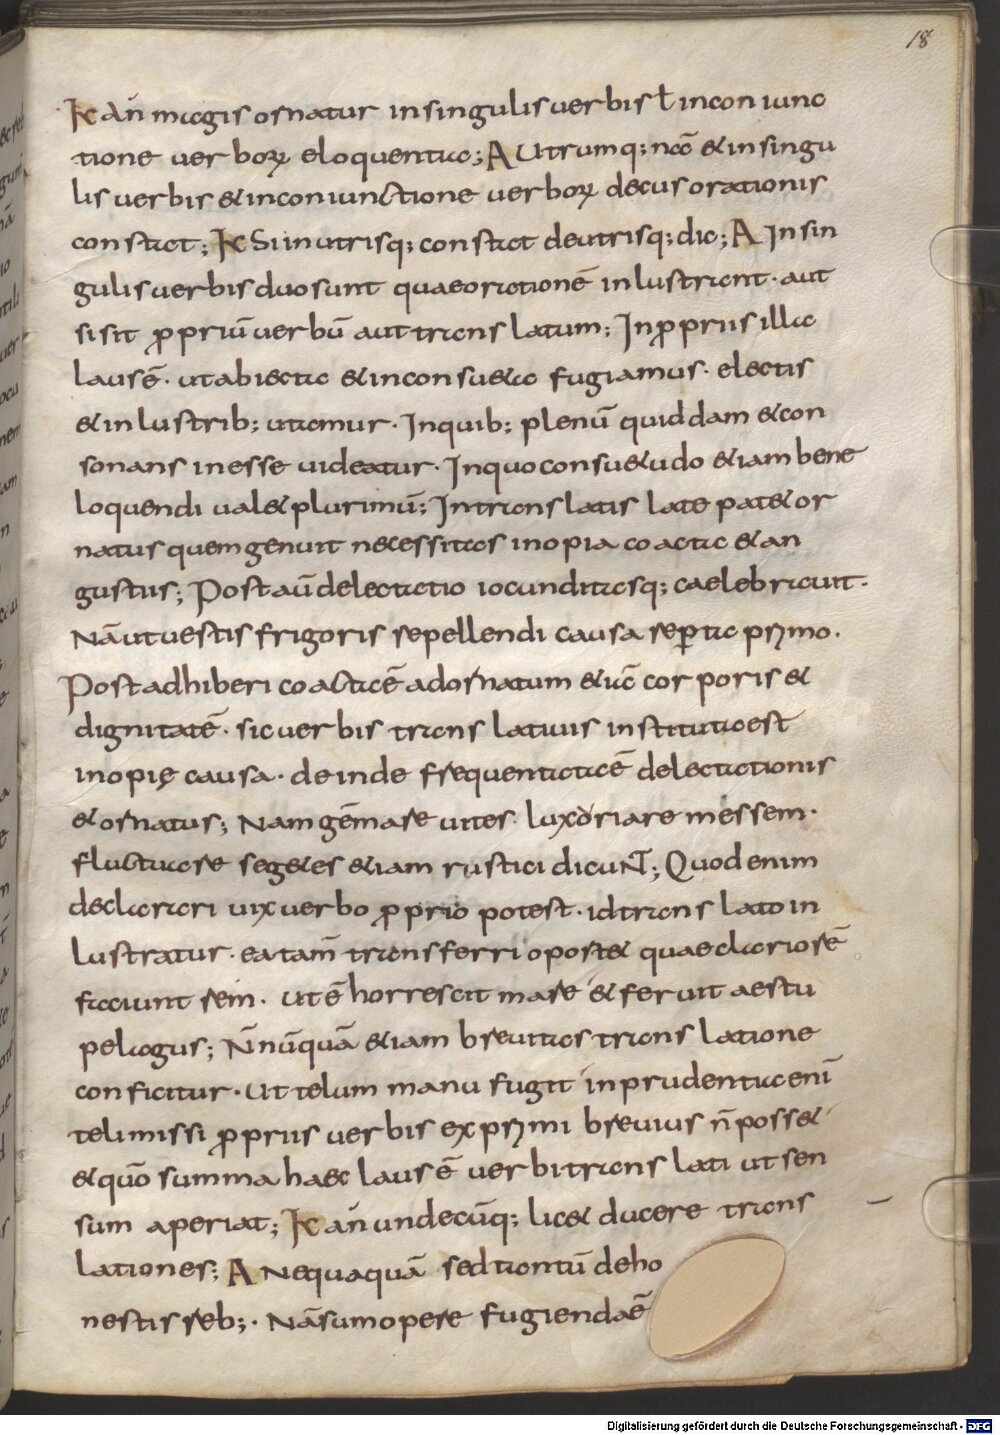 18
K An magis ornatur in singulis verbis ł in coniunc
tione verborꝝ eloquentia; A Utrumq; nā & in singu
lis verbis & in coniunctione verborꝝ decus orationis
constat; K Si in utrisq; constat de utrisq; dic; A In sin
gulis verbis duo sunt quae orationē inlustrant · aut
si sit ꝓpriū verbū aut translatum; In ꝓpriis illa
laus ē · ut abiecta & inconsu&a fugiamus · electis
& inlustrib; utamur · In quib; plenū quiddam & con
sonans inesse videatur · In quo consu&udo &iam bene
loquendi val& plurimū; In translatis late pat& or
natus quem genuit necessitas inopia coacta & an
gustiis; Post aū delectatio iocunditasq; caelebravit ·
Nā ut vestis frigoris repellendi causa reperta primo ·
Post adhiberi coacta ē ad ornatum &iā corporis &
dignitatē · sic verbis translativis instituta est
inopię causa · deinde frequentata ē delectationis
& ornatus; Nam gēmare vites luxoriare messem ·
fluctuare seg&es &iam rustici dicuNT; Quod enim
declarari vix verbo ꝓprio potest · id translato in
lustratur · ea tam̄ transferri oport& quae clariorē
faciunt rem · ut ē horrescit mare & fervit aestu
pelagus; Nn̄ūquā &iam brevitas translatione
conficitur · Ut telum manu fugit inprudentia enī
teli missi ꝓpriis verbis exprimi brevius n̄ poss&
& quō summa haec laus ē verbi translati ut sen
sum aperiat; K an undecūq; lic& ducere trans
lationes; A Nequaquā sed tantū de ho
nestis reb; · Nā sumopere fugienda ē
Digitalisierung gefördert durch die Deutsche Forschungsgemeinschaft - DFG